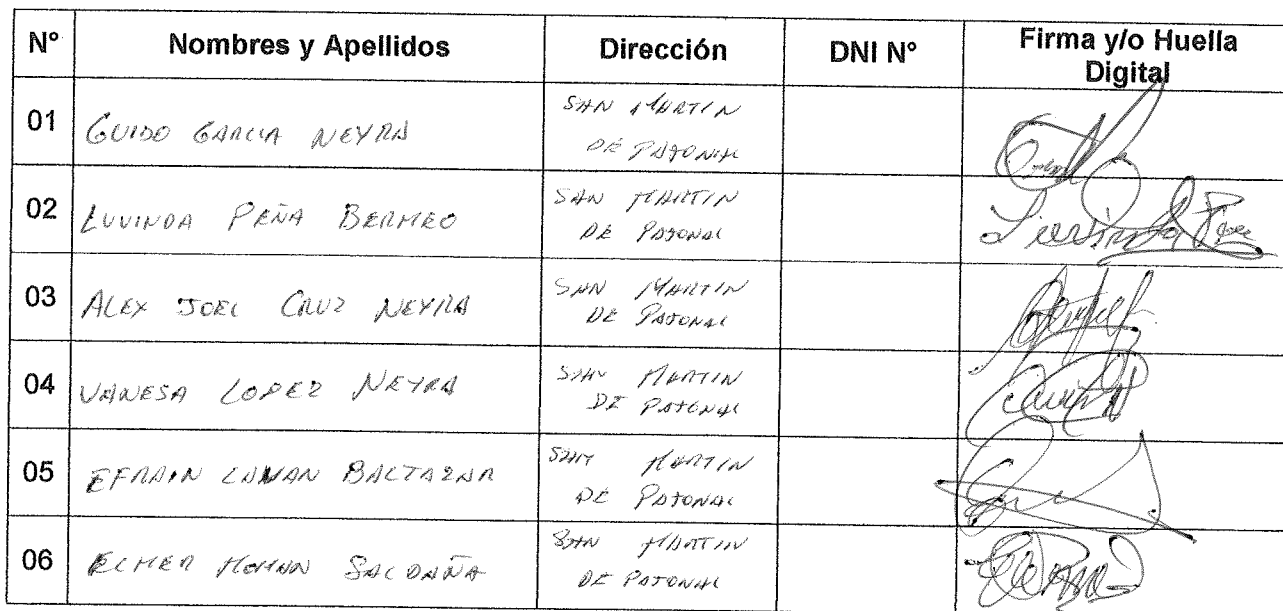 N° Nombres y Apellidos Dirección DNI N° Firma y/o Huella
Digital
01 GUIDO GARCIA NEYRA SAN MARTIN
DE PAJONAL
02 LUVINDA PEÑA BERMEO SAN MARTIN
DE PAJONAL
03 ALEX JOEL CRUZ NEYRA SAN MARTIN
DE PAJONAL
04 VANESA LOPEZ NEYRA SAN MARTIN
DE PAJONAL
05 EFRAIN BALTAZAR SAN MARTIN
DE PAJONAL
06 ELMER SALDAÑA SAN MARTIN
DE PAJONAL